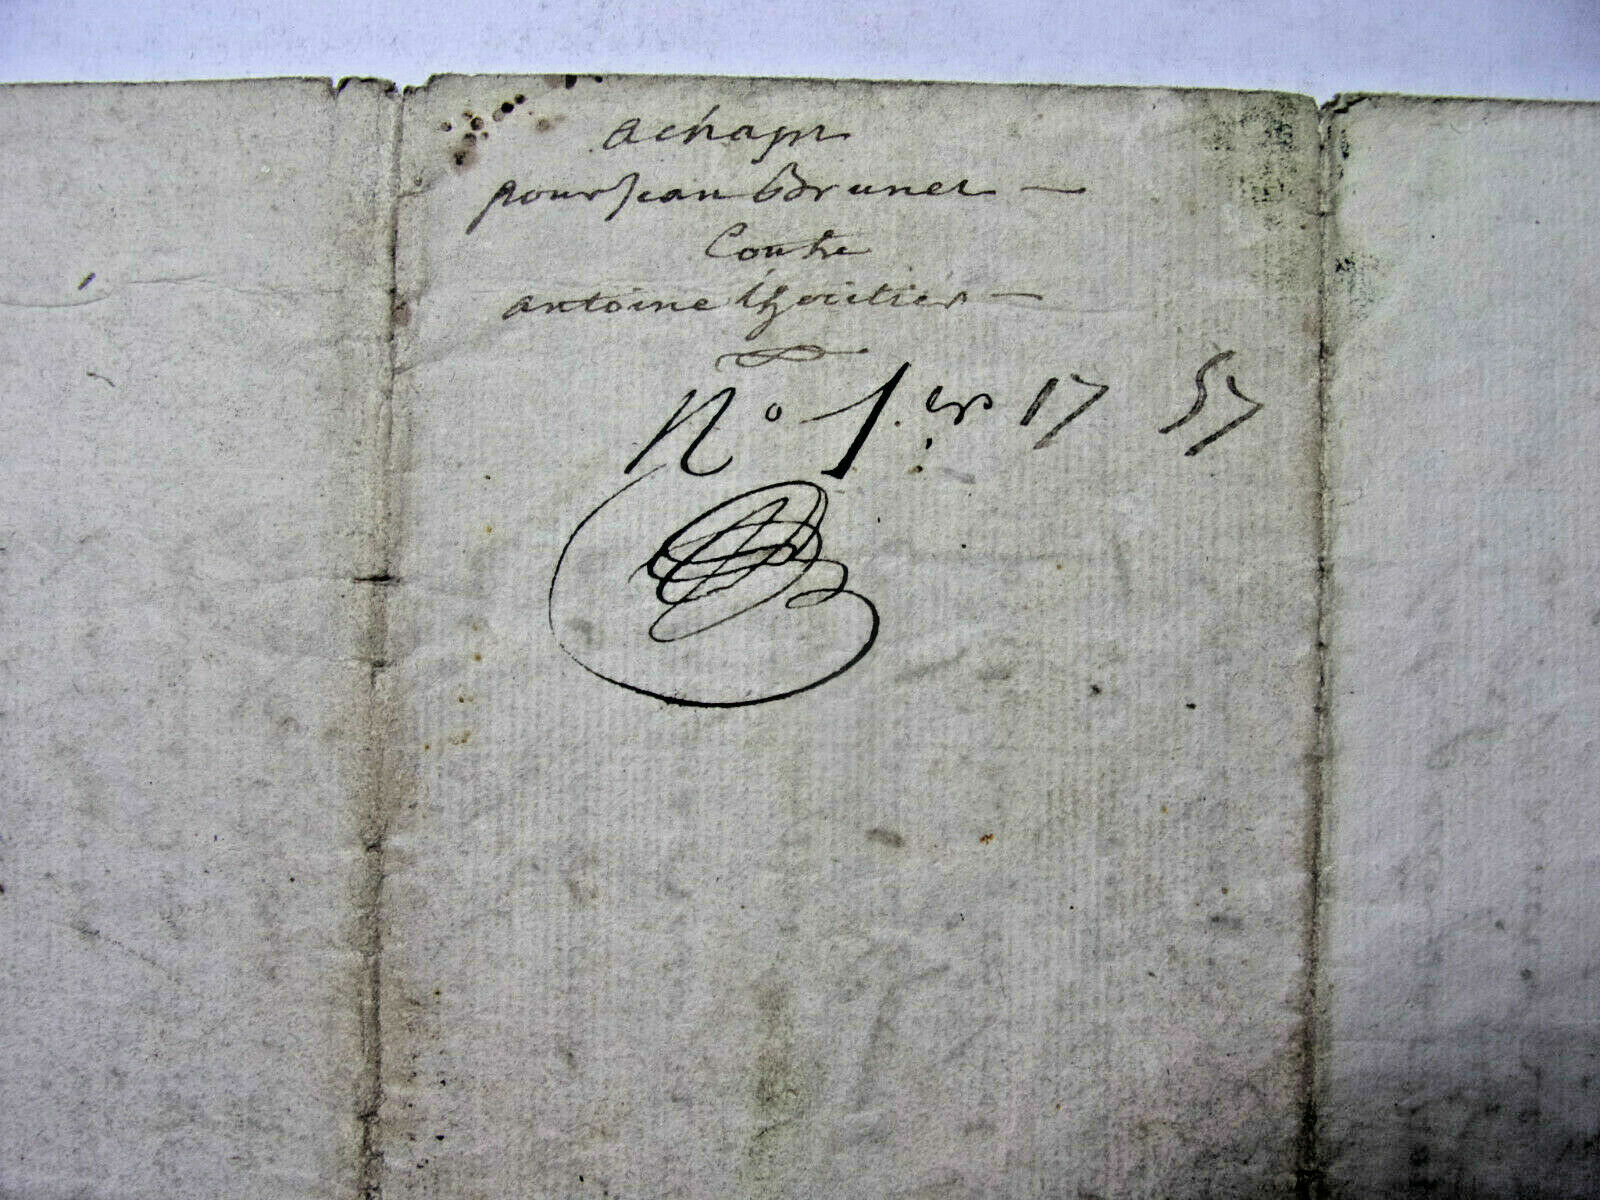 achapt
pour Jean Brunet —
Contre
antoine —
N° 1.er 17 57